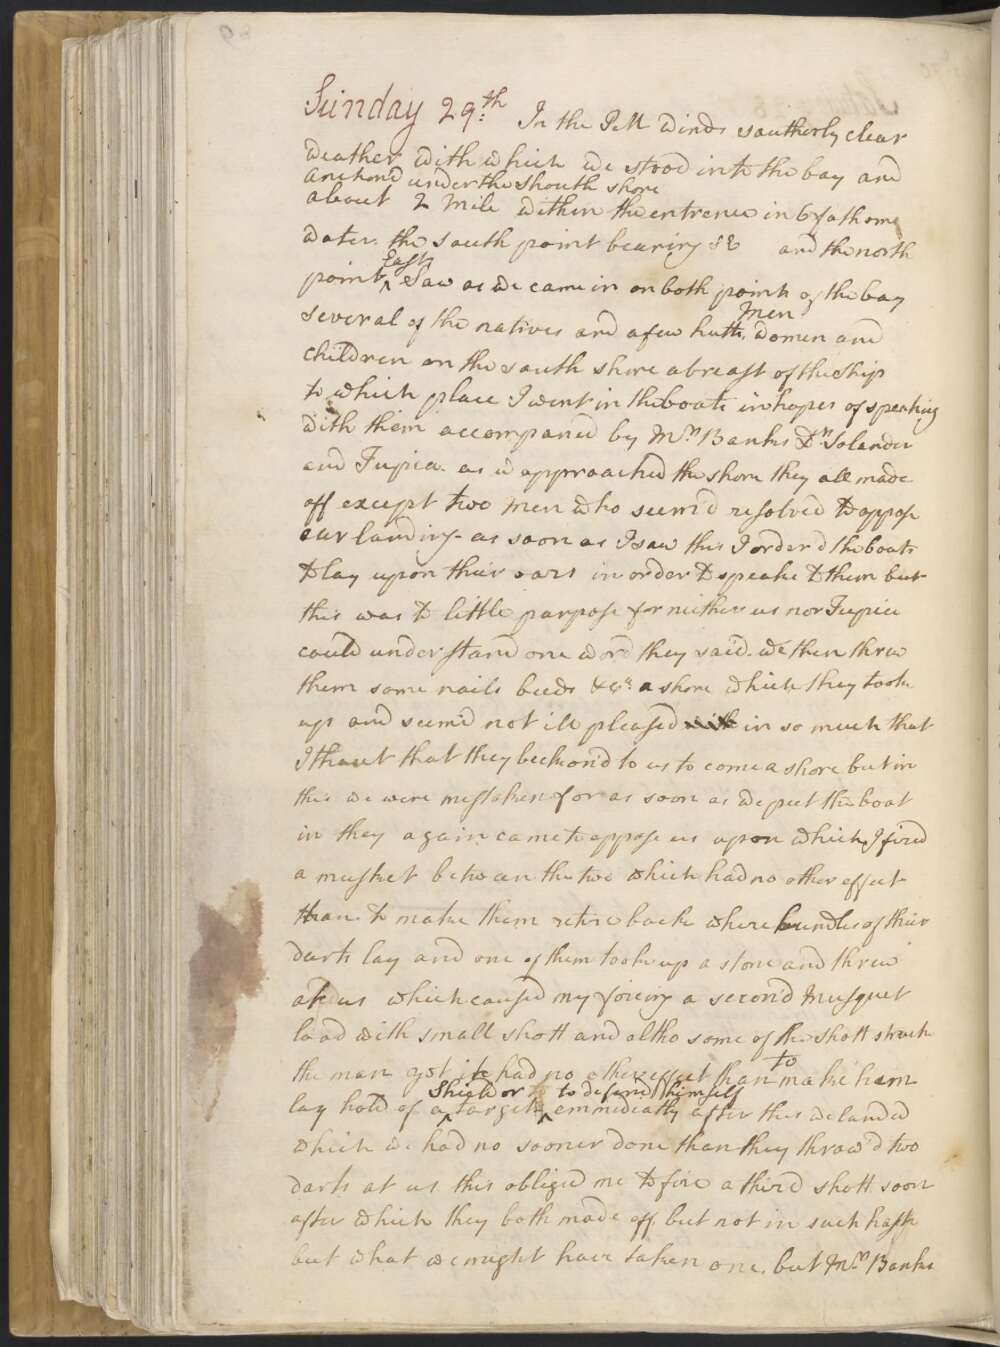 Sunday 29th In the PM winds southerly clear
weather with which we stood into the bay and
Anchor'd under the South shore
about 2 Mile within the entrence in 6 fathoms
water. the South point bearing SE and the north
point East Saw as we came in on both points of the bay
several of the natives and a few hutts, Men women and
children on the south shore abreast of the Ship
to which place I went in the boats in hopes of speaking
with them accompaned by Mr Banks Dr Solander
and Tupia. as we approached the shore they all made
off except two Men who seem'd resolved to oppose
our landing - as soon as I saw this I order'd the boats
to lay upon their oars in order to speake to them but
this was to little purpose for neither us nor Tupia
could understand one word they said. we then threw
them some nails beeds &ca a shore which they took
up and seem'd not ill pleased in so much that
I thout that they beckon'd to us to come a shore but in
this we were mistaken for as soon as we put the boat
in they again came to oppose us upon which I fired
a musket between the two which had no other effect
than to make them retire back where bundles of their
darts lay and one of them took up a stone and threw
at us which caused my fireing a second Musquet
load with small shott and altho some of the shott struck
the man yet it had no other effect than to make him
lay hold of a Shield or target to defend himself emmidiatly after this we landed
which we had no sooner done than they throw'd two
darts at us this obliged me to fire a third shott soon
after which they both made off, but not in such haste
but what we might have taken one. but Mr Banks